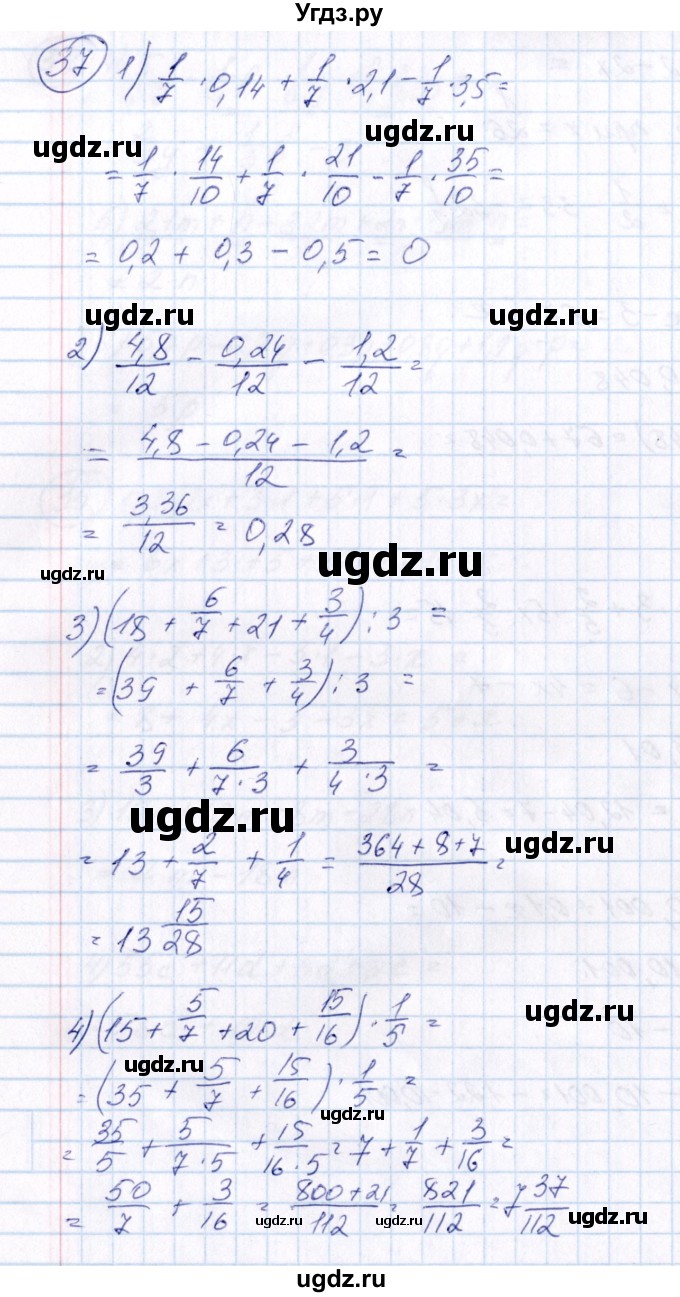 Угдз.ру
37 1) 1/7 · 0,14 + 1/7 · 2,1 - 1/7 · 3,5 =
ugdz.ru ugdz.ru
= 1/7 · 14/10 + 1/7 · 21/10 - 1/7 · 35/10 =
= 0,2 + 0,3 - 0,5 = 0
ugdz.ru ugdz.ru
2) 4,8/12 - 0,24/12 - 1,2/12 =
= (4,8 - 0,24 - 1,2)/12 =
= 3,36/12 = 0,28
ugdz.ru ugdz.ru
3) (18 + 6/7 + 21 + 3/4) : 3 =
= (39 + 6/7 + 3/4) : 3 =
= 39/3 + 6/(7·3) + 3/(4·3) =
ugdz.ru ugdz.ru
= 13 + 2/7 + 1/4 = (364+8+7)/28 =
= 13 15/28
ugdz.ru
4) (15 + 5/7 + 20 + 15/16) · 1/5 =
ugdz.ru
= (35 + 5/7 + 15/16) · 1/5 =
ugdz.ru
= 35/5 + 5/(7·5) + 15/(16·5) = 7 + 1/7 + 3/16 =
= 50/7 + 3/16 = (800+21)/112 = 821/112 = 7 37/112
ugdz.ru ugdz.ru ugdz.ru
ugdz.ru